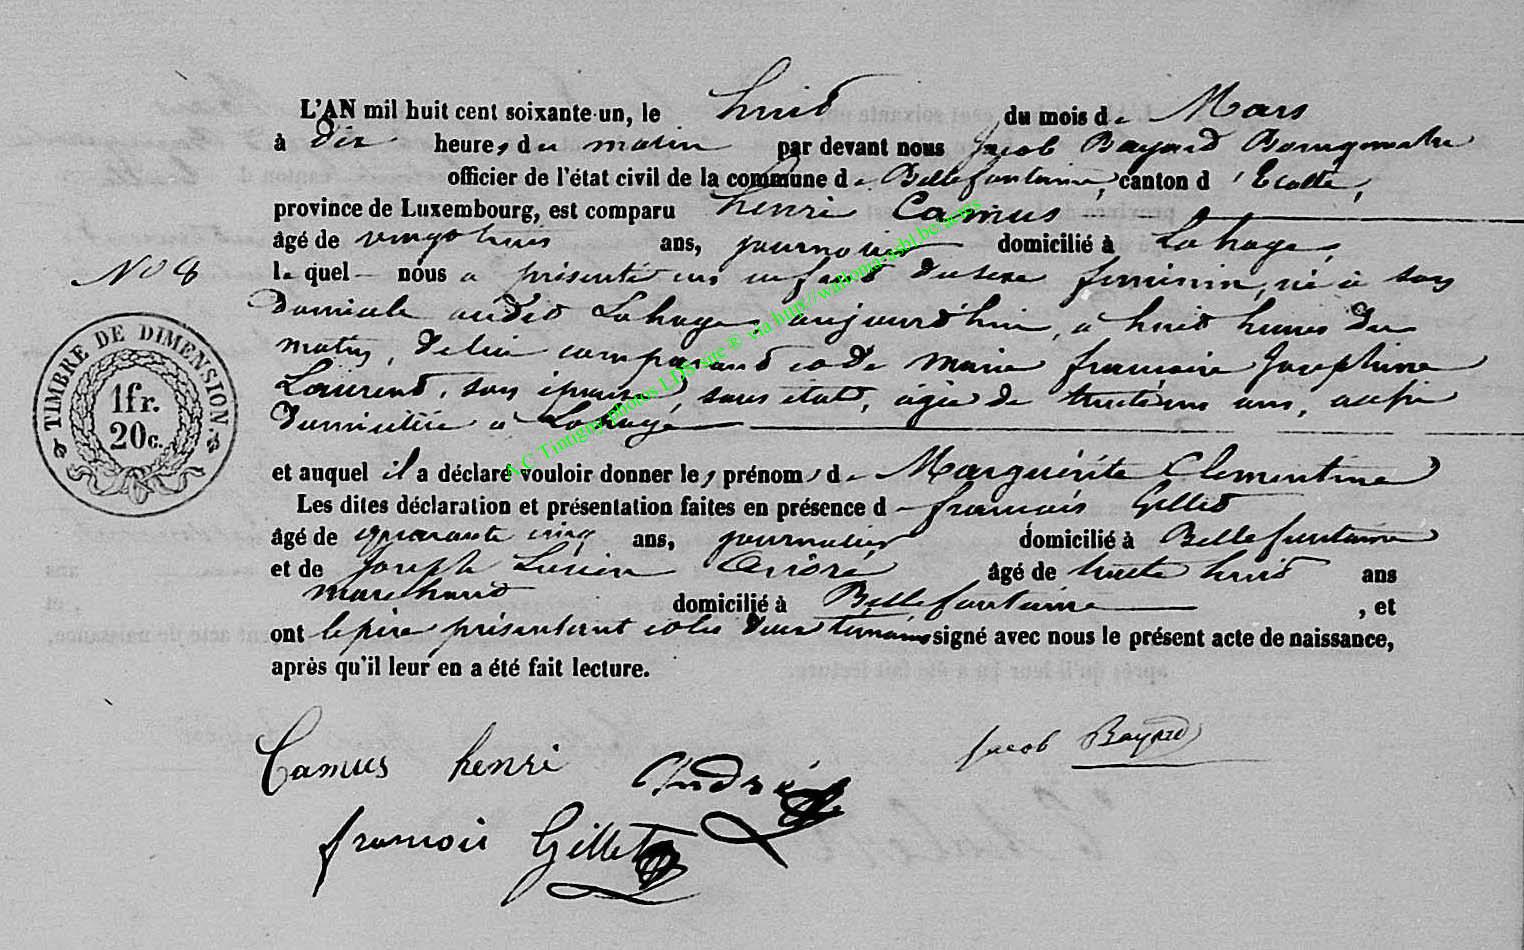 L'AN mil huit cent soixante-un, le huit du mois de Mars
à dix heures du matin par devant nous Jacob Bayard Bourgmestre
officier de l'état civil de la commune de Bellefontaine, canton d'Etalle,
province de Luxembourg, est comparu henri Camus,
âgé de vingt huit ans, journalier domicilié à Lahage,
N° 8
le quel nous a présenté un enfant du sexe feminin, né à son
Domicile audit Lahage, aujourd'hui, à huit heures du
matin, de lui comparant et de Marie francoise Josephine
TIMBRE DE DIMENSION
1 fr.
20 c.
Laurent, son épouse, sans état, agée de ans, aussi
Domiciliée à Lahage
et auquel il a déclaré vouloir donner les prénoms de Marguérite Clementine
Les dites déclaration et présentation faites en présence de francois Gillet
âgé de quarante cinq ans, journalier domicilié à Bellefontaine
et de Joseph Lucien André âgé de trente huit ans
marchand domicilié à Bellefontaine, et
ont le père présentant et les deux témoins signé avec nous le présent acte de naissance,
après qu'il leur en a été fait lecture.
Camus henri André Jacob Bayard
francois Gillet
A.C Tintigny photos LDS sur ® via http://wallonia-asbl.be/actes